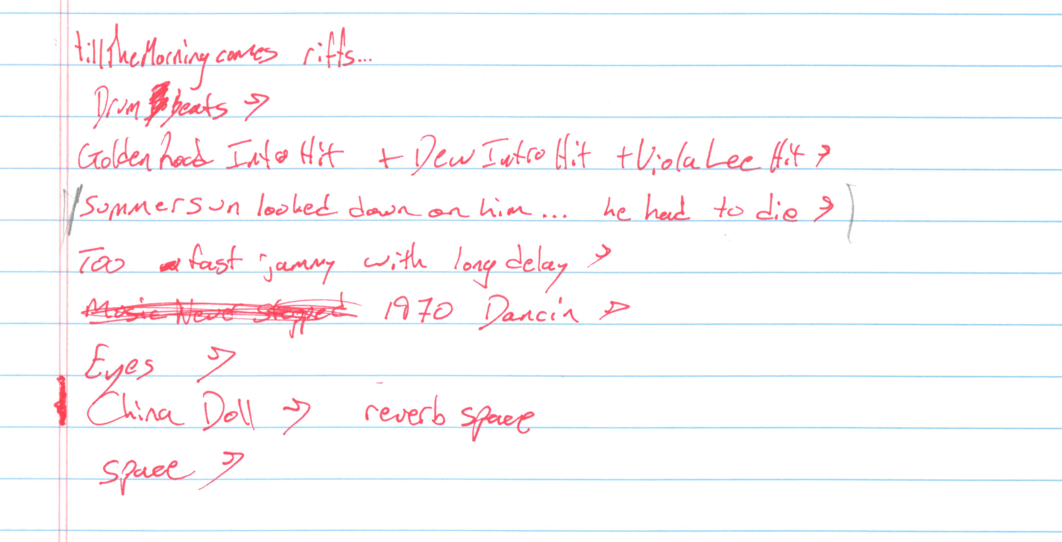 till the Morning comes riffs...
Drum beats →
Golden road Intro Hit + Dew Intro Hit + Viola Lee Hit →
(Summer sun looked down on him... he had to die →)
Too fast jammy with long delay →
Music Never Stopped 1970 Dancin →
Eyes →
China Doll → reverb space
space →